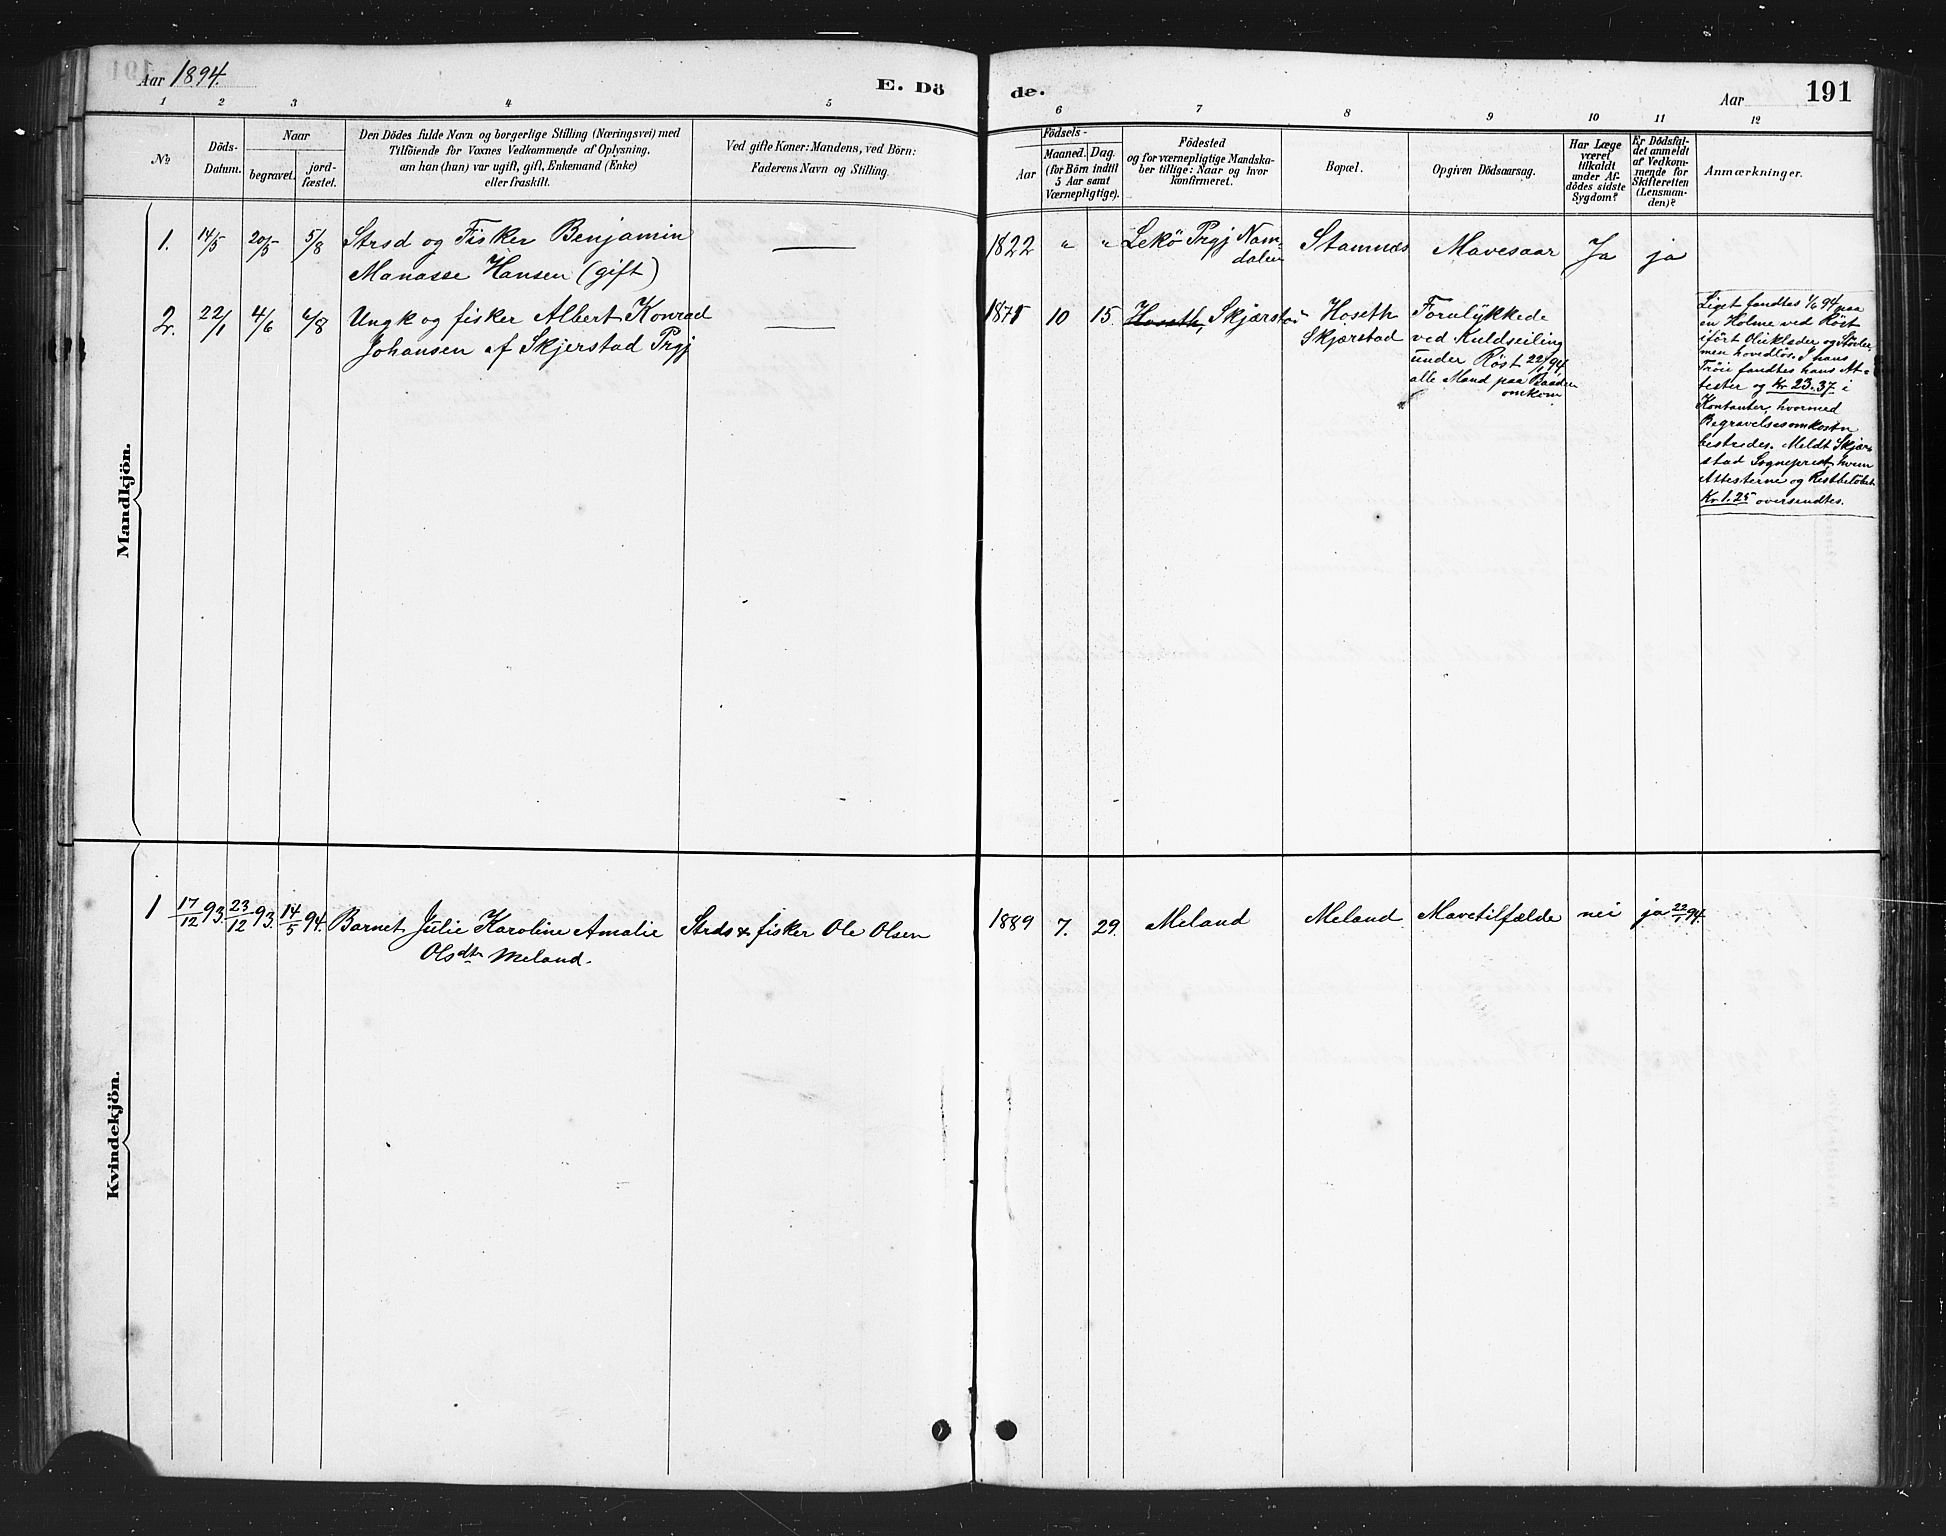 Aar 1894.
E. Dö
de.
Aar
191
1 2 3 4 5 6 7 8 9 10 11 12
No
Döds-
Datum.
Naar
begravet.
jord-
fæstet.
Den Dödes fulde Navn og borgerlige Stilling (Næringsvei) med
Tilföiende for Voxnes Vedkommende af Oplysning,
om han (hun) var ugift, gift, Enkemand (Enke)
eller fraskilt.
Ved gifte Koner: Mandens, ved Börn:
Faderens Navn og Stilling.
Födsels-
Aar
Maaned. Dag.
(for Börn indtil
5 Aar samt
Værnepligtige).
Födested
og for værnepligtige Mandska-
ber tillige: Naar og hvor
konfirmeret.
Bopæl.
Opgiven Dödsaarsag.
Har Læge
været
tilkaldt
under Af-
dödes sidste
Sygdom?
Er Dödsfal-
det anmeldt
af Vedkom-
mende for
Skifteretten
(Lensman-
den)?
Anmærkninger.
Mandkjön.
1. 14/5 20/5 5/8 Strsd og Fisker Benjamin
Manasse Hansen (gift)
1822 " " Lekö Prgj Nam-
dalen
Stamnæs
Mavesaar
Ja
ja
2. 22/1 4/6 6/8 Ungk og fisker Albert Konrad
Johansen af Skjerstad Prgj
10 15. Hoseth, Skjærstad
Hoseth
Skjærstad
Forulykkede
ved Kuldseiling
under Röst 22/1 94
alle Mand paa Baaden
omkom
Liget fandtes 1/6 94 paa
en Holme ved Röst
iført Olieklæder og Støvler,
men hovedløs. I hans
Trøie fandtes hans At-
tester og Kr 23.37 i
Kontanter, hvormed
Begravelsesomkostn
bestredes. Meldt Skjær-
stad Sogneprest, hvem
Attesterne og Restbeløbet
Kr 1.25 oversendtes.
Kvindekjön.
1 17/12 93. 23/12 93. 14/5 94. Barnet Julie Karoline Amalie
Olsdtr Meland.
Strds & fisker Ole Olsen
1889 7. 29. Meland
Meland
Mavetilfælde
nei
ja 22/1 94.